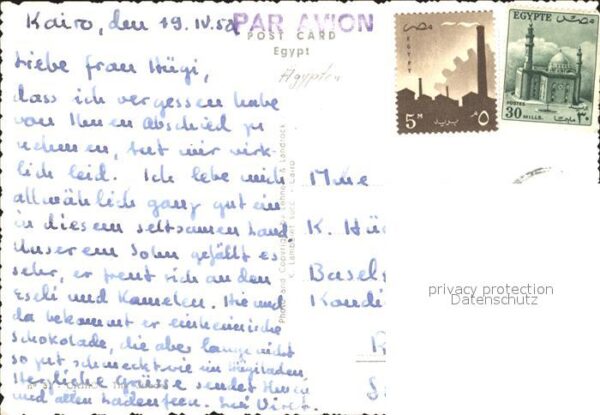 Kairo, den 19. IV. 58
PAR AVION
POST CARD
Egypt
Ägypten
EGYPT
مصر
5 M
بريد
٥
EGYPTE
مصر
POSTES
30 MILLS.
٣٠
Liebe Frau Hügi,
dass ich vergessen habe
von Ihnen Abschied zu
nehmen, tut mir wirk-
lich leid. Ich lebe mich
allmählich ganz gut ein
in diesem seltsamen Land
Unserem Sohn gefällt es
sehr, er freut sich an den
Eseli und Kamelen. Hie und
da bekommt er einheimische
Schokolade, die aber lange nicht
so gut schmeckt wie im Hügiladen.
Herzliche Grüsse sendet Ihnen
und allen Ladenfeen.
Photo and Copyright by Lehnert & Landrock
K. Lambelet Succ. Cairo
Mme
K. Hü
Basel
Kondi
privacy protection
Datenschutz